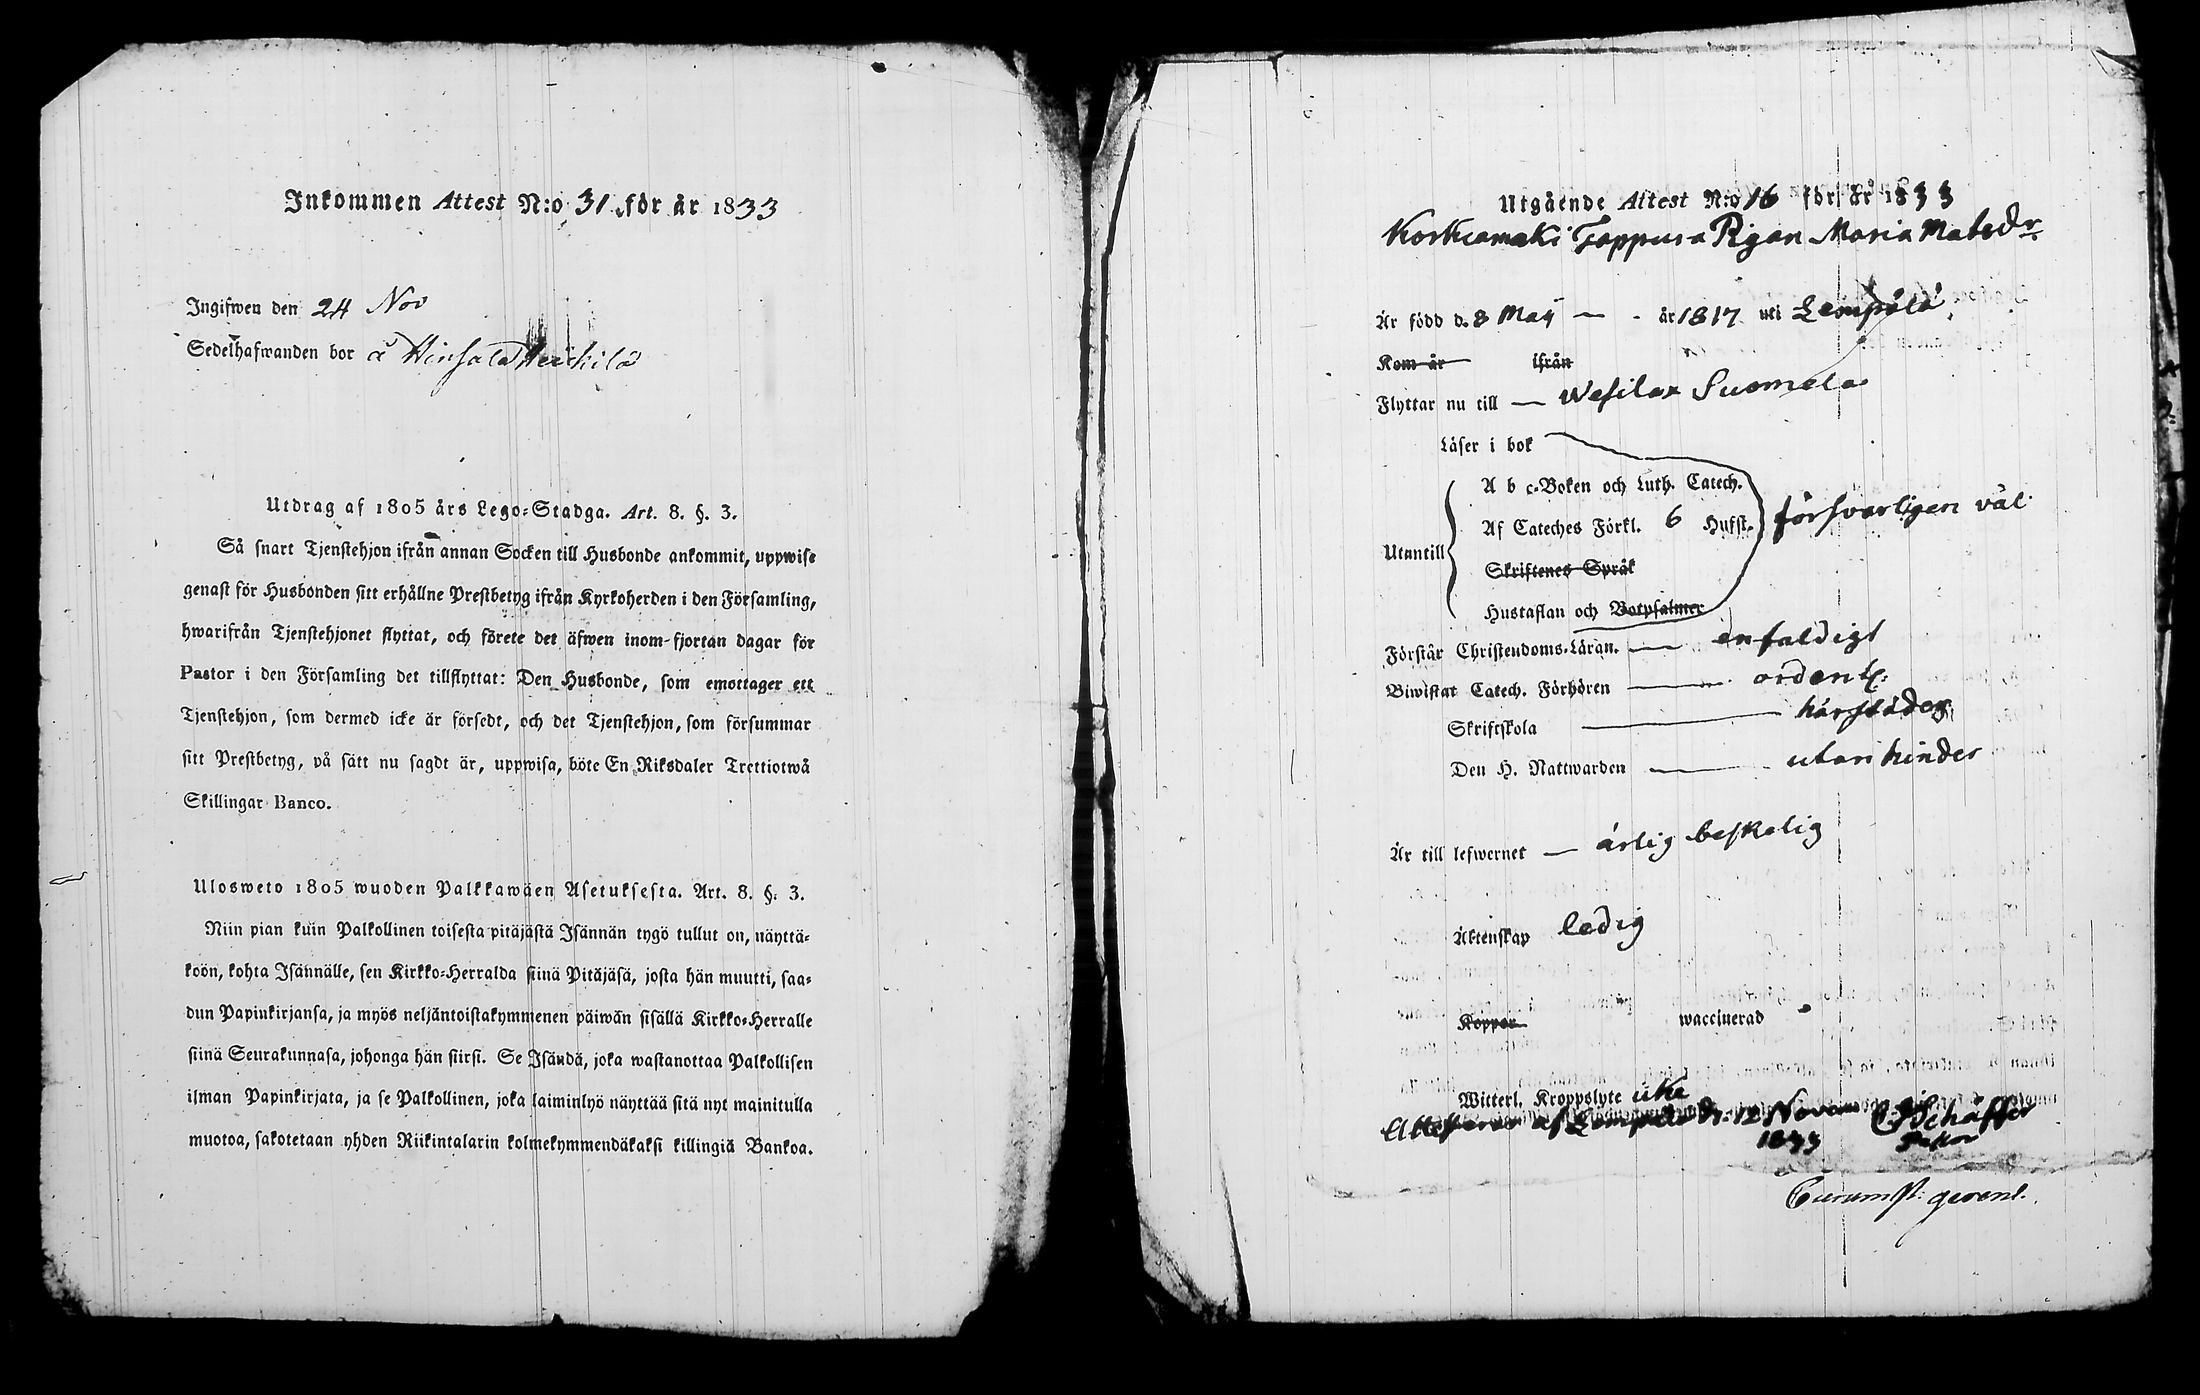 Inkommen Attest N:o 31 för år 1833
Ingifwen den 24 Nov
Sedelhafwanden bor å Hinsala Heikkilä
Utdrag af 1805 års Lego-Stadga. Art. 8. §. 3.
Så snart Tjenstehjon ifrån annan Socken till Husbonde ankommit, uppwise
genast för Husbonden sitt erhållne Prestbetyg ifrån Kyrkoherden i den Församling,
hwarifrån Tjenstehjonet flyttat, och förete det äfwen inom fjortan dagar för
Pastor i den Församling det tillflyttat: Den Husbonde, som emottager ett
Tjenstehjon, som dermed icke är försedt, och det Tjenstehjon, som försummar
sitt Prestbetyg, på sätt nu sagdt är, uppwisa, böte En Riksdaler Trettiotwå
Skillingar Banco.
Ulosweto 1805 wuoden Palkkawäen Asetuksesta. Art. 8. §. 3.
Niin pian kuin Palkollinen toisesta pitäjästä Isännän tygö tullut on, näyttä-
köön, kohta Isännälle, sen Kirkko-Herralda siinä Pitäjäsä, josta hän muutti, saa-
dun Papinkirjansa, ja myös neljäntoistakymmenen päiwän sisällä Kirkko-Herralle
siinä Seurakunnasa, johonga hän siirsi. Se Isändä, joka wastanottaa Palkollisen
ilman Papinkirjata, ja se Palkollinen, joka laiminlyö näyttää sitä nyt mainitulla
muotoa, sakotetaan yhden Riikintalarin kolmekymmendäkaksi killingiä Bankoa.
Utgående Attest N:o 16 för år 1833
Korkiamäki Tappura Pigan Maria Matsdr
Är född d. 8 Maij — år 1817 uti Lempälä
Kom år ifrån
Flyttar nu till — Wesilax Suomela
Läser i bok
A b c-Boken och Luth. Catech.
Af Cateches Förkl. 6 Hufst. försvarligen väl
Utantill
Skriftenes Språk
Hustaflan och Botpsalmer
Förstår Christendoms-Läran. — enfaldigt
Biwistat Catech. Förhören — ordentl:
Skriftskola — härstädes
Den H. Nattwarden — utan hinder
Är till lefwernet — ärlig beskelig
Äktenskap ledig
Koppor waccinerad
Witterl. Kroppslyte icke
Attesteras af Lempälä d. 12 Novem C J Schäffer
1833 Pastor